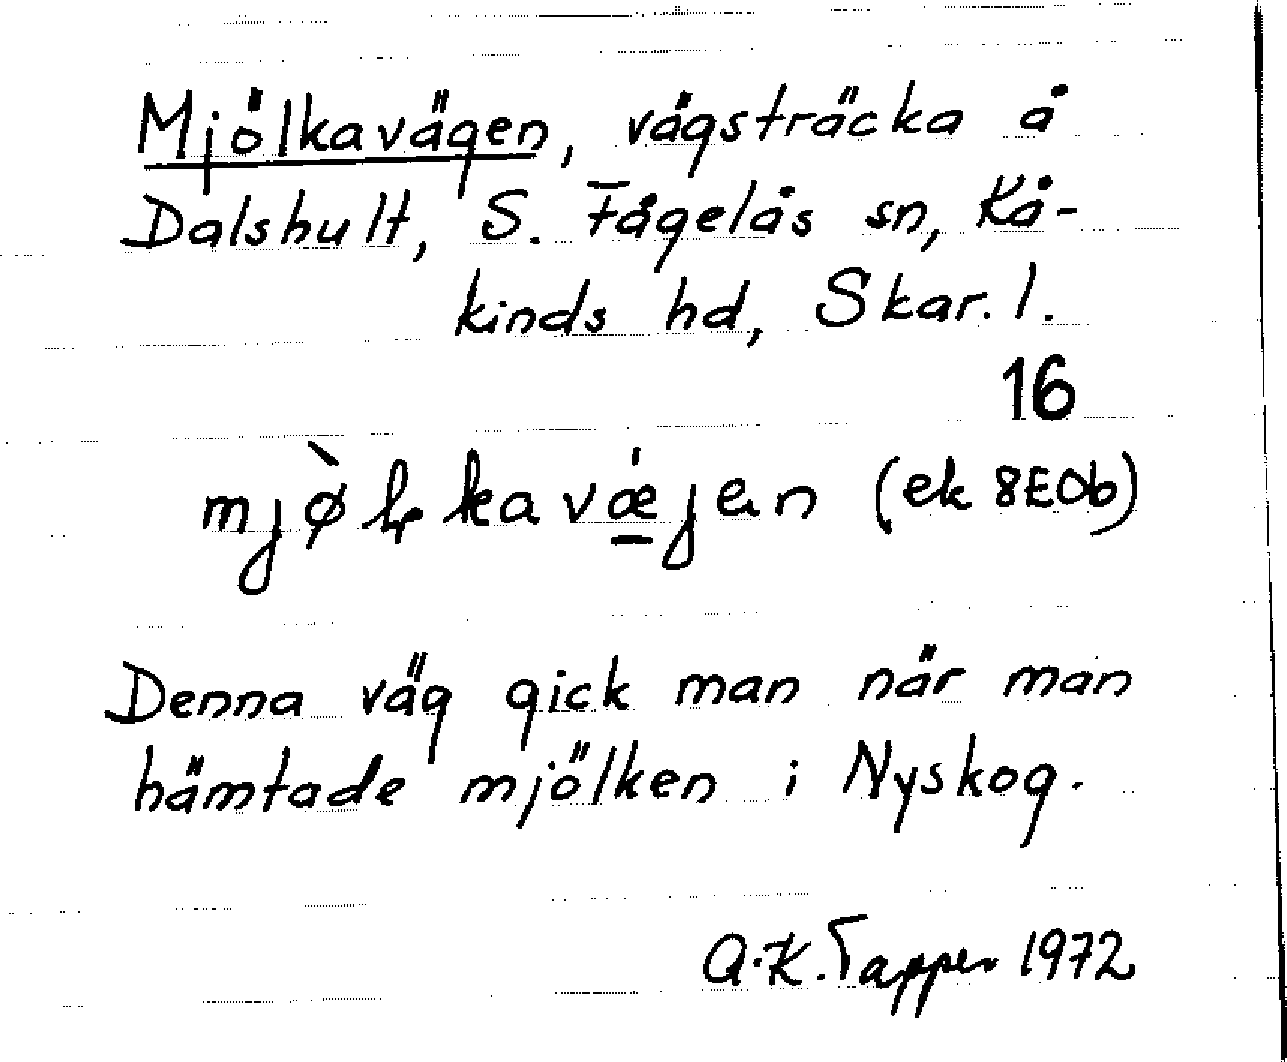 Mjölkavägen, vägsträcka å
Dalshult, S. Fågelås sn, Kå-
kinds hd, Skar. l.
16
mjø̀lkavǽjen (ek 8E0b)
Denna väg gick man när man
hämtade mjölken i Nyskog.
A.K. Tapper 1972